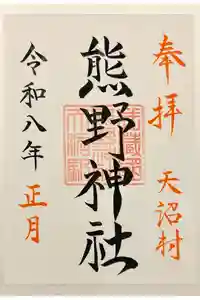 奉拝
天沼村
熊野神社
令和八年
正月